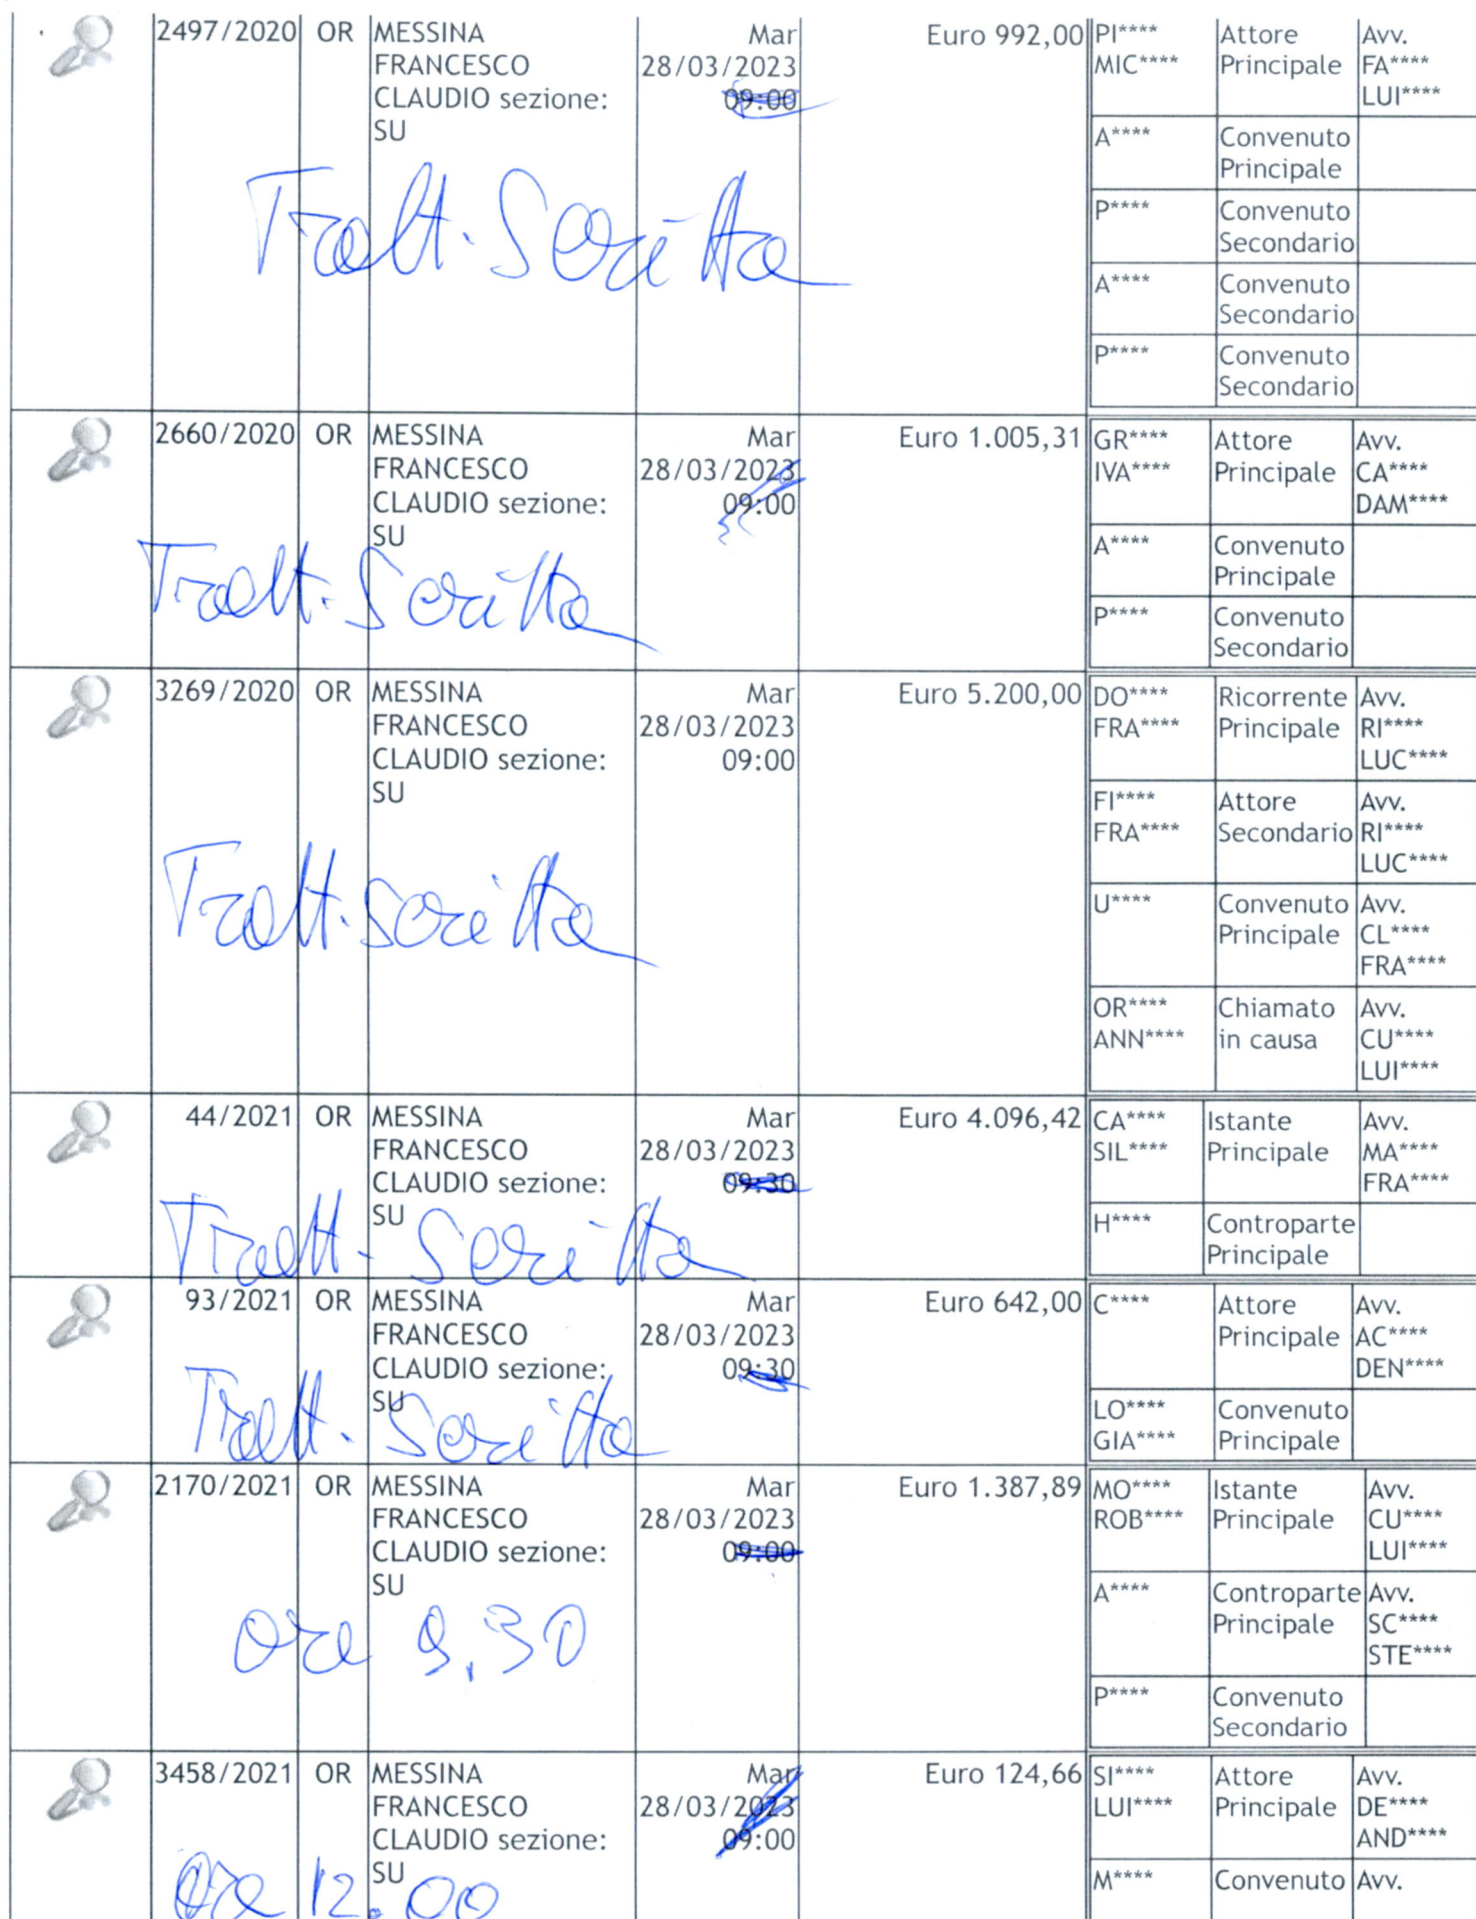 2497/2020 OR MESSINA FRANCESCO CLAUDIO sezione: SU Mar 28/03/2023 09:00 Euro 992,00
PI**** MIC**** Attore Principale Avv. FA**** LUI****
A**** Convenuto Principale
P**** Convenuto Secondario
A**** Convenuto Secondario
P**** Convenuto Secondario
Tratt. Scritta
2660/2020 OR MESSINA FRANCESCO CLAUDIO sezione: SU Mar 28/03/2023 09:00 Euro 1.005,31
GR**** IVA**** Attore Principale Avv. CA**** DAM****
A**** Convenuto Principale
P**** Convenuto Secondario
Tratt. Scritta
3269/2020 OR MESSINA FRANCESCO CLAUDIO sezione: SU Mar 28/03/2023 09:00 Euro 5.200,00
DO**** FRA**** Ricorrente Principale Avv. RI**** LUC****
FI**** FRA**** Attore Secondario Avv. RI**** LUC****
U**** Convenuto Principale Avv. CL**** FRA****
OR**** ANN**** Chiamato in causa Avv. CU**** LUI****
Tratt. Scritta
44/2021 OR MESSINA FRANCESCO CLAUDIO sezione: SU Mar 28/03/2023 09:30 Euro 4.096,42
CA**** SIL**** Istante Principale Avv. MA**** FRA****
H**** Controparte Principale
Tratt. Scritta
93/2021 OR MESSINA FRANCESCO CLAUDIO sezione: SU Mar 28/03/2023 09:30 Euro 642,00
C**** Attore Principale Avv. AC**** DEN****
LO**** GIA**** Convenuto Principale
Tratt. Scritta
2170/2021 OR MESSINA FRANCESCO CLAUDIO sezione: SU Mar 28/03/2023 09:00 Euro 1.387,89
MO**** ROB**** Istante Principale Avv. CU**** LUI****
A**** Controparte Principale Avv. SC**** STE****
P**** Convenuto Secondario
Ore 9,30
3458/2021 OR MESSINA FRANCESCO CLAUDIO sezione: SU Mar 28/03/2023 09:00 Euro 124,66
SI**** LUI**** Attore Principale Avv. DE**** AND****
M**** Convenuto Avv.
Ore 12.00